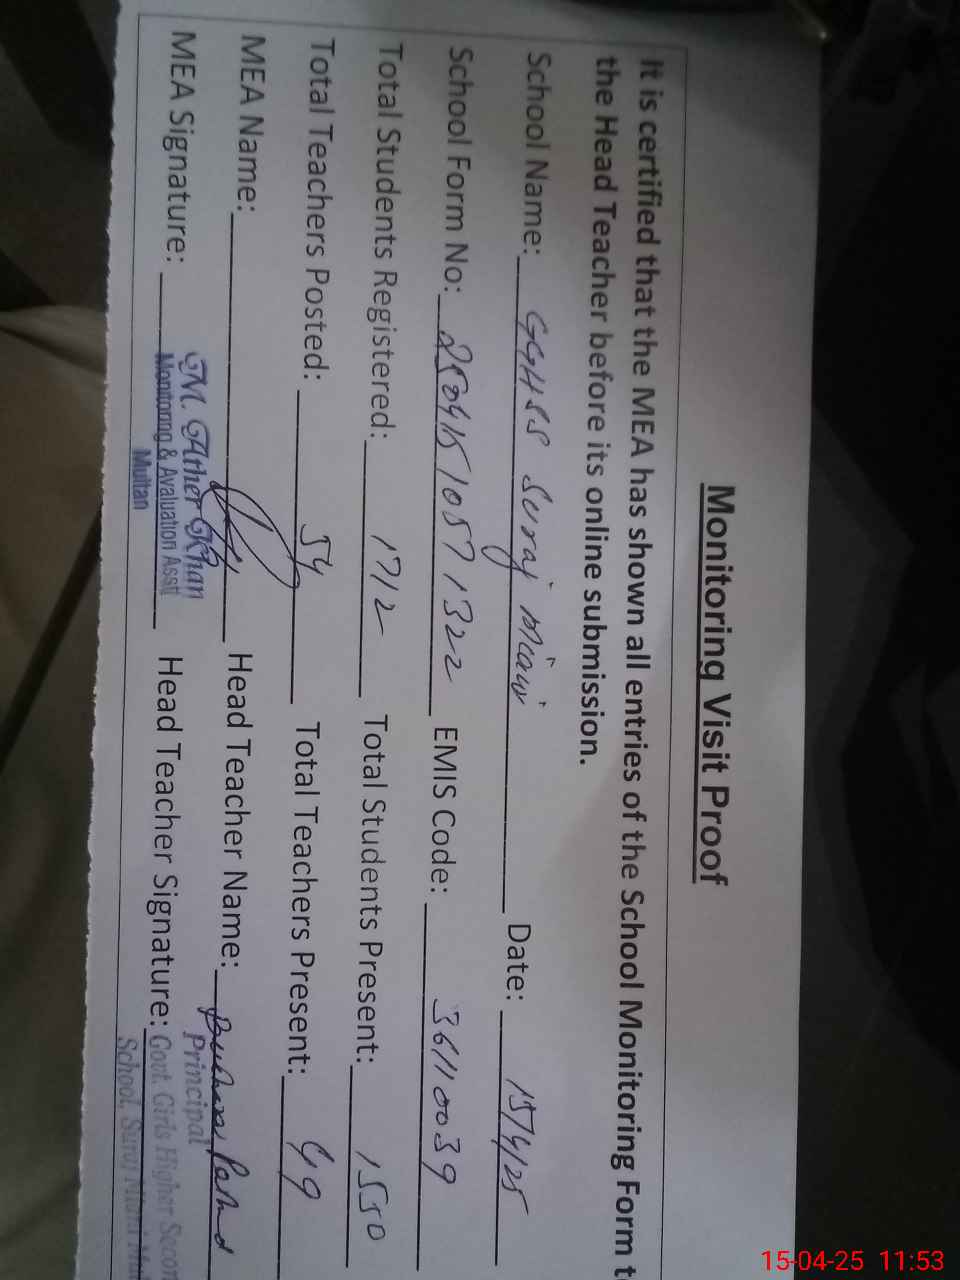 Monitoring Visit Proof
It is certified that the MEA has shown all entries of the School Monitoring Form t
the Head Teacher before its online submission.
School Name: GGHSS Suraj Miani Date: 15/4/25
School Form No: EMIS Code: 36110039
Total Students Registered: 1712 Total Students Present: 1550
Total Teachers Posted: 54 Total Teachers Present: 49
MEA Name: Head Teacher Name:
M. Ather Khan
Monitoring & Avaluation Asstt
Multan
MEA Signature: Head Teacher Signature:
Principal
Govt. Girls Higher Secon
School, Suraj Miani Mul
15-04-25 11:53